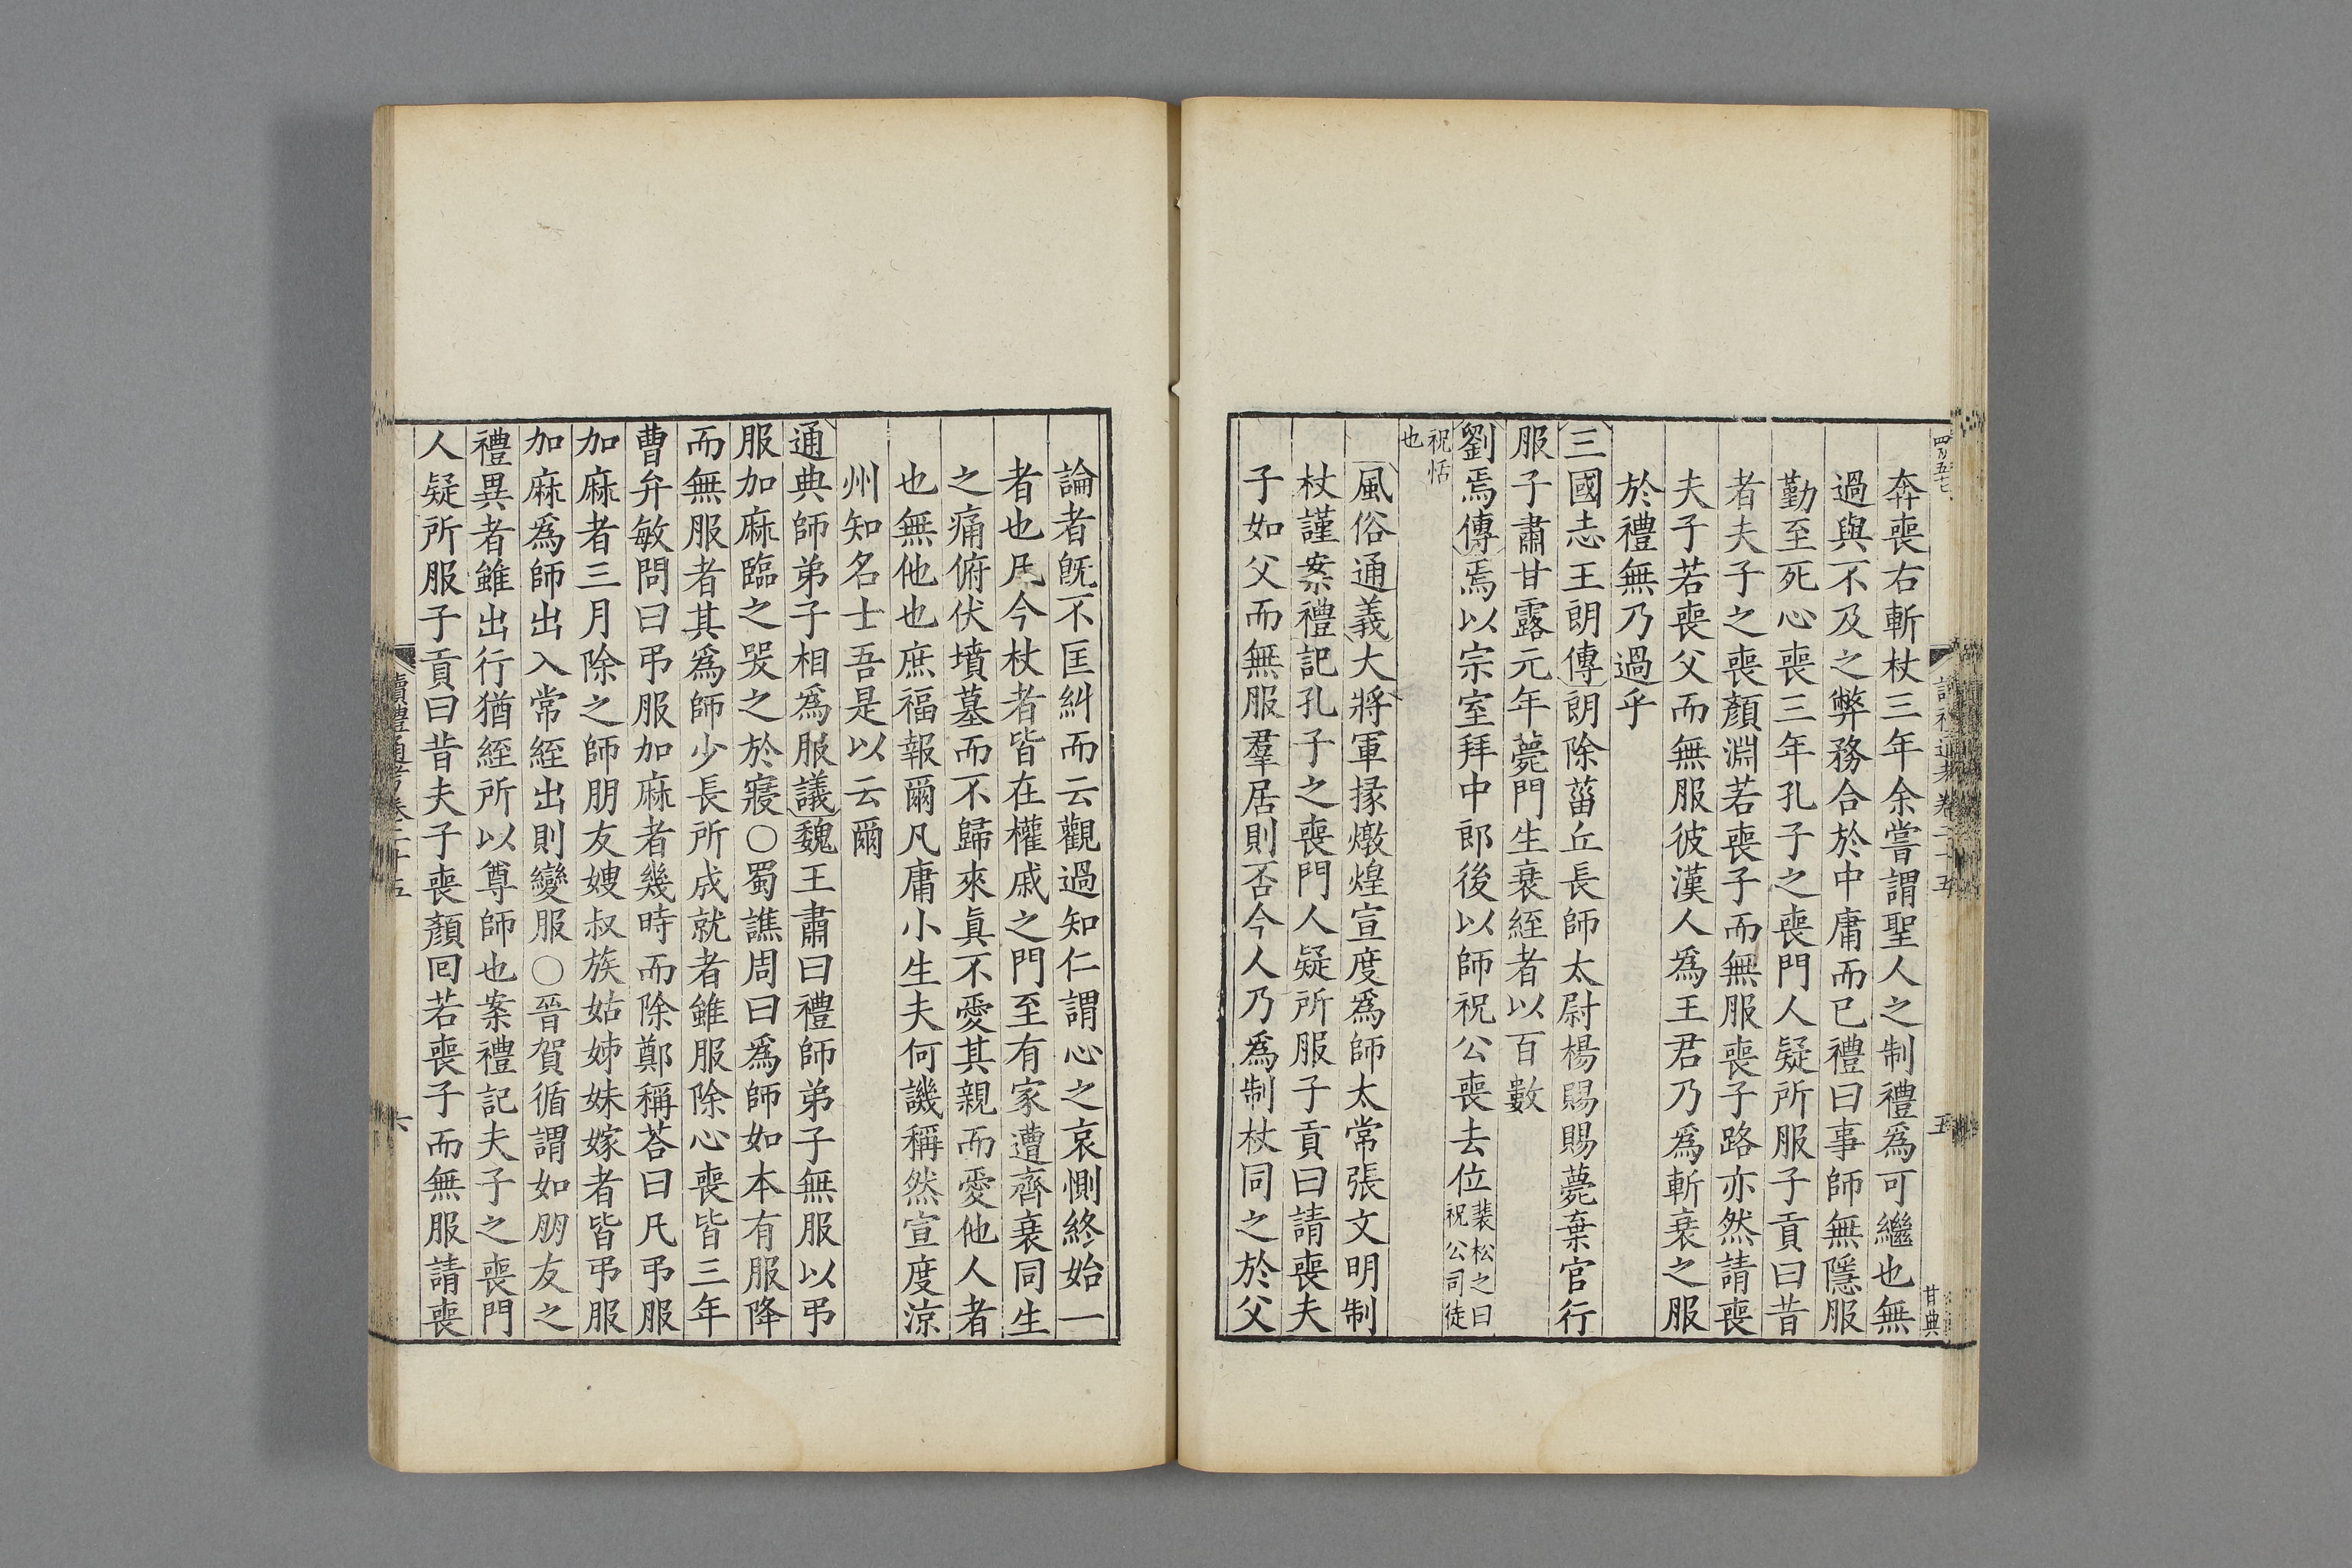 四百五十七
讀禮通考 卷二十五
五
甘典
奔喪右斬杖三年余嘗謂聖人之制禮爲可繼也無
過與不及之弊務合於中庸而已禮曰事師無隱服
勤至死心喪三年孔子之喪門人疑所服子貢曰昔
者夫子之喪顏淵若喪子而無服喪子路亦然請喪
夫子若喪父而無服彼漢人爲王君乃爲斬衰之服
於禮無乃過乎
三國志王朗傳朗除菑丘長師太尉楊賜賜薨棄官行
服子肅甘露元年薨門生衰絰者以百數
劉焉傳焉以宗室拜中郎後以師祝公喪去位裴松之曰祝公司徒
祝恬也
風俗通義大將軍掾燉煌宣度爲師太常張文明制
杖謹案禮記孔子之喪門人疑所服子貢曰請喪夫
子如父而無服羣居則否今人乃爲制杖同之於父
論者既不匡糾而云觀過知仁謂心之哀惻終始一
者也凡今杖者皆在權戚之門至有家遭齊衰同生
之痛俯伏墳墓而不歸來眞不愛其親而愛他人者
也無他也庶福報爾凡庸小生夫何譏稱然宣度涼
州知名士吾是以云爾
通典師弟子相爲服議魏王肅曰禮師弟子無服以弔
服加麻臨之哭之於寢○蜀譙周曰爲師如本有服降
而無服者其爲師少長所成就者雖服除心喪皆三年
曹弁敏問曰弔服加麻者幾時而除鄭稱荅曰凡弔服
加麻者三月除之師朋友嫂叔族姑姊妹嫁者皆弔服
加麻爲師出入常絰出則變服○晉賀循謂如朋友之
禮異者雖出行猶絰所以尊師也案禮記夫子之喪門
人疑所服子貢曰昔夫子喪顏回若喪子而無服請喪
讀禮通考卷二十五
六